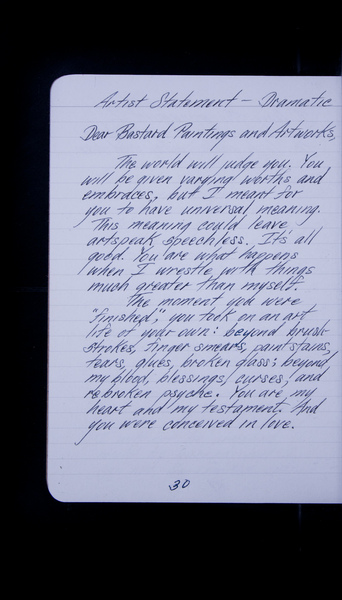 Artist Statement - Dramatic
Dear Bastard Paintings and Artworks,
The world will judge you. You
will be given varying worths and
embraces, but I meant for
you to have universal meaning.
This meaning could leave
artspeak speechless. It's all
good. You are what happens
when I wrestle with things
much greater than myself.
The moment you were
"finished", you took on an art
life of your own: beyond brush
strokes, finger smears, paint stains,
tears, glues, broken glass; beyond
my blood, blessings, curses, and
rebroken psyche. You are my
heart and my testament. And
you were conceived in love.
30